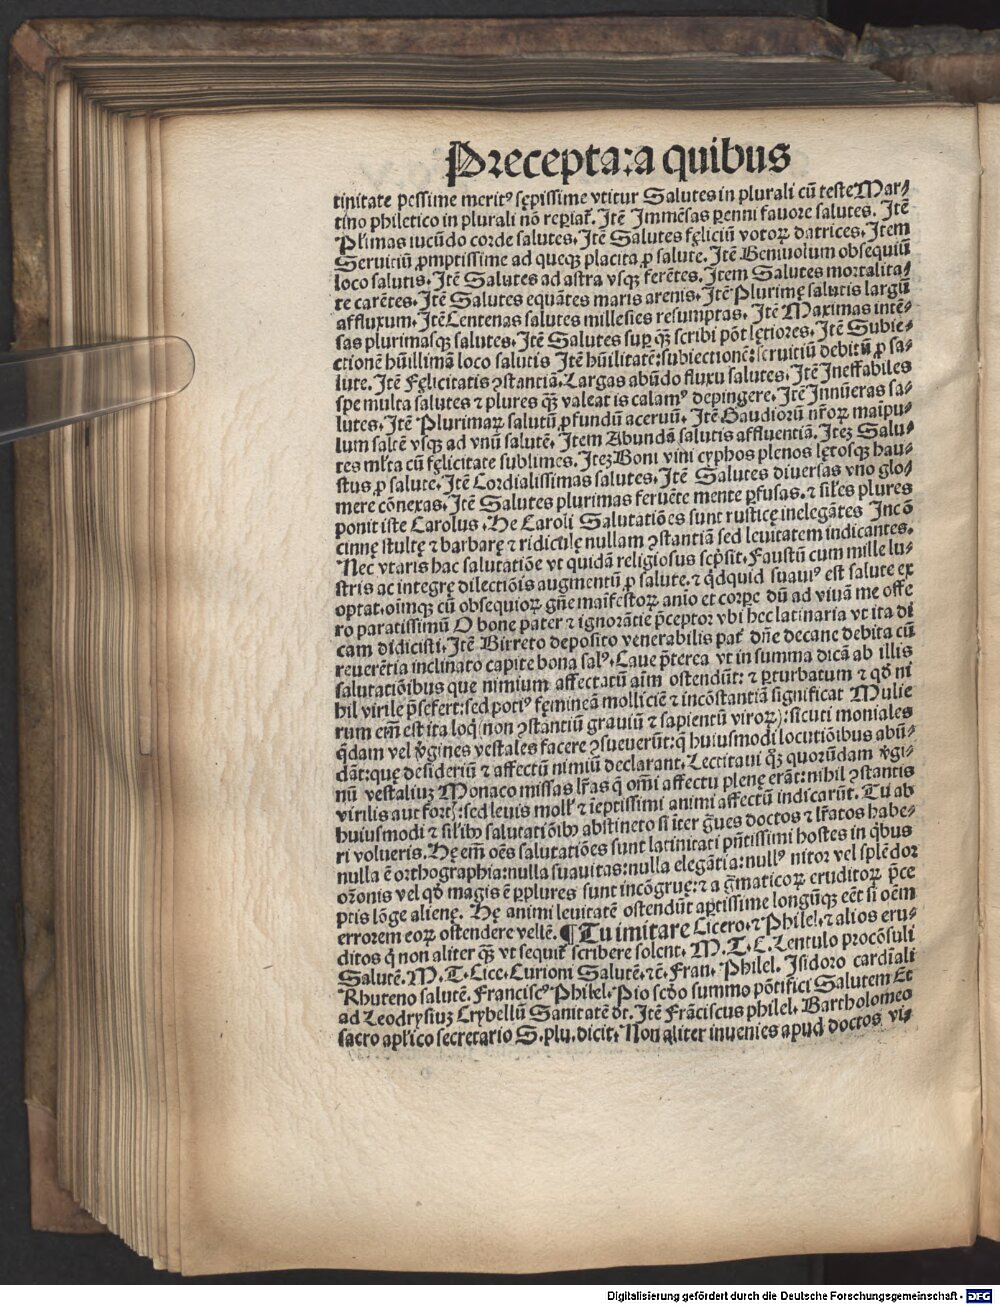 Preceptara quibus
tinitate pessime meritꝰ sępissime vtitur Salutes in plurali cū teste Mar⸗
tino philetico in plurali nō reꝑiat̄. Itē Immēsas ꝑenni fauore salutes. Itē
Pl̄imas iucūdo corde salutes. Itē Salutes fęliciū votoꝝ datrices. Item
Seruitiū ꝓmptissime ad queqꝫ placita ꝓ salute. Itē Beniuolum obsequiū
loco salutis. Itē Salutes ad astra vsqꝫ ferētes. Item Salutes mortalita⸗
te carētes. Itē Salutes equātes maris arenis. Itē Plurimę salutis largū
affluxum. Itē Centenas salutes millesies resumptas. Itē Maximas intē⸗
sas plurimasqꝫ salutes. Itē Salutes suꝑ qꝫ̄ scribi pōt lętiores. Itē Subie⸗
ctionē hūillimā loco salutis Itē hūilitatē: subiectionē: seruitiū debitū ꝓ sa⸗
lute. Itē Fęlicitatis ꝯstantiā. Largas abūdo fluxu salutes. Itē Ineffabiles
spe multa salutes ⁊ plures qꝫ̄ valeat is calamꝰ depingere. Itē Innūeras sa⸗
lutes. Itē Plurimaꝝ salutū ꝓfundū aceruū. Itē Gaudiorū nr̄oꝝ maīpu⸗
lum saltē vsqꝫ ad vnū salutē. Item Abundā salutis affluentiā. Iteꝫ Salu⸗
tes ml̄ta cū fęlicitate sublimes. Iteꝫ Boni vini cyphos plenos lętosqꝫ hau⸗
stus ꝓ salute. Itē Cordialissimas salutes. Itē Salutes diuersas vno glo⸗
mere cōnexas. Itē Salutes plurimas feruēte mente ꝑfusas. ⁊ sil̄es plures
ponit iste Carolus. He Caroli Salutatiōes sunt rusticę inelegātes Inc̄o
cinnę stultę ⁊ barbarę ⁊ ridiculę nullam ꝯstantiā sed leuitatem indicantes.
Nec vtaris hac salutatiōe vt quidā religiosus scp̄sit. Faustū cum mille lu⸗
stris ac integrę dilectiōis augmentū ꝓ salute. ⁊ qd̄quid suauiꝰ est salute ex
optat. oīmqꝫ cū obsequioꝝ gn̄e maīfestoꝝ anīo et corꝑe dū ad viuā me offe
ro paratissimū O bone pater ⁊ ignorātie p̄ceptor vbi hec latinaria vt ita di
cam didicisti. Itē Birreto deposito venerabilis pat̄ dn̄e decane debita cū
reuerētia inclinato capite bona salꝰ. Caue p̄terea vt in summa dicā ab illis
salutatiōibus que nimium affectatū aīm ostendūt: ⁊ ꝑturbatum ⁊ qd̄ ni
hil virile p̄sefert: sed potiꝰ fęmineā molliciē ⁊ incōstantiā significat Mulie
rum em̄ est ita loq̄ (non ꝯstantiū grauiū ⁊ sapientū viroꝝ): sicuti moniales
q̄dam vel v̄gines vestales facere ꝯsueuerūt: q̄ huiusmodi locutiōibus abū⸗
dāt: quę desideriū ⁊ affectū nimiū declarant. Lectitaui qꝫ̄ quorūdam v̄gi⸗
nū vestaliuꝫ Monaco missas lr̄as q̄ om̄i affectu plenę erāt: nihil ꝯstantis
virilis aut fort̄: sed leuis moll̄ ⁊ ieptissimi animi affectū indicarūt. Tu ab
huiusmodi ⁊ sil̄ibꝫ salutatiōibꝫ abstineto si īter g̈ues doctos ⁊ lr̄atos habe⸗
ri volueris. Hę em̄ oēs salutatiōes sunt latinitati pn̄tissimi hostes in q̄bus
nulla ē orthographia: nulla suauitas: nulla elegātia: nullꝰ nitor vel splēdor
or̄onis vel qd̄ magis ē ꝑplures sunt incōgruę: ⁊ a g̈maticoꝝ eruditoꝝ p̄ce
ptis lōge alienę. Hę animi leuitatē ostendūt aꝑtissime longūqꝫ eēt si oēm
errorem eoꝝ ostendere vellē. ¶ Tu imitare Cicero. ⁊ Philel. ⁊ alios eru⸗
ditos q̄ non aliter qꝫ̄ vt sequit̄ scribere solent. M. T. C. Lentulo procōsuli
Salutē. M. T. Cice. Curioni Salutē. ⁊c̄. Fran. Philel. Isidoro cardīali
Rhuteno salutē. Franciscꝰ Philel. Pio scd̄o summo pōtifici Salutem Et
ad Leodrysiuꝫ Crybellū Sanitatē dt̄. Itē Frāciscus philel. Bartholomeo
sacro apl̄ico secretario S. plu. dicit. Non aliter inuenies apud doctos vi⸗
Digitalisierung gefördert durch die Deutsche Forschungsgemeinschaft - DFG